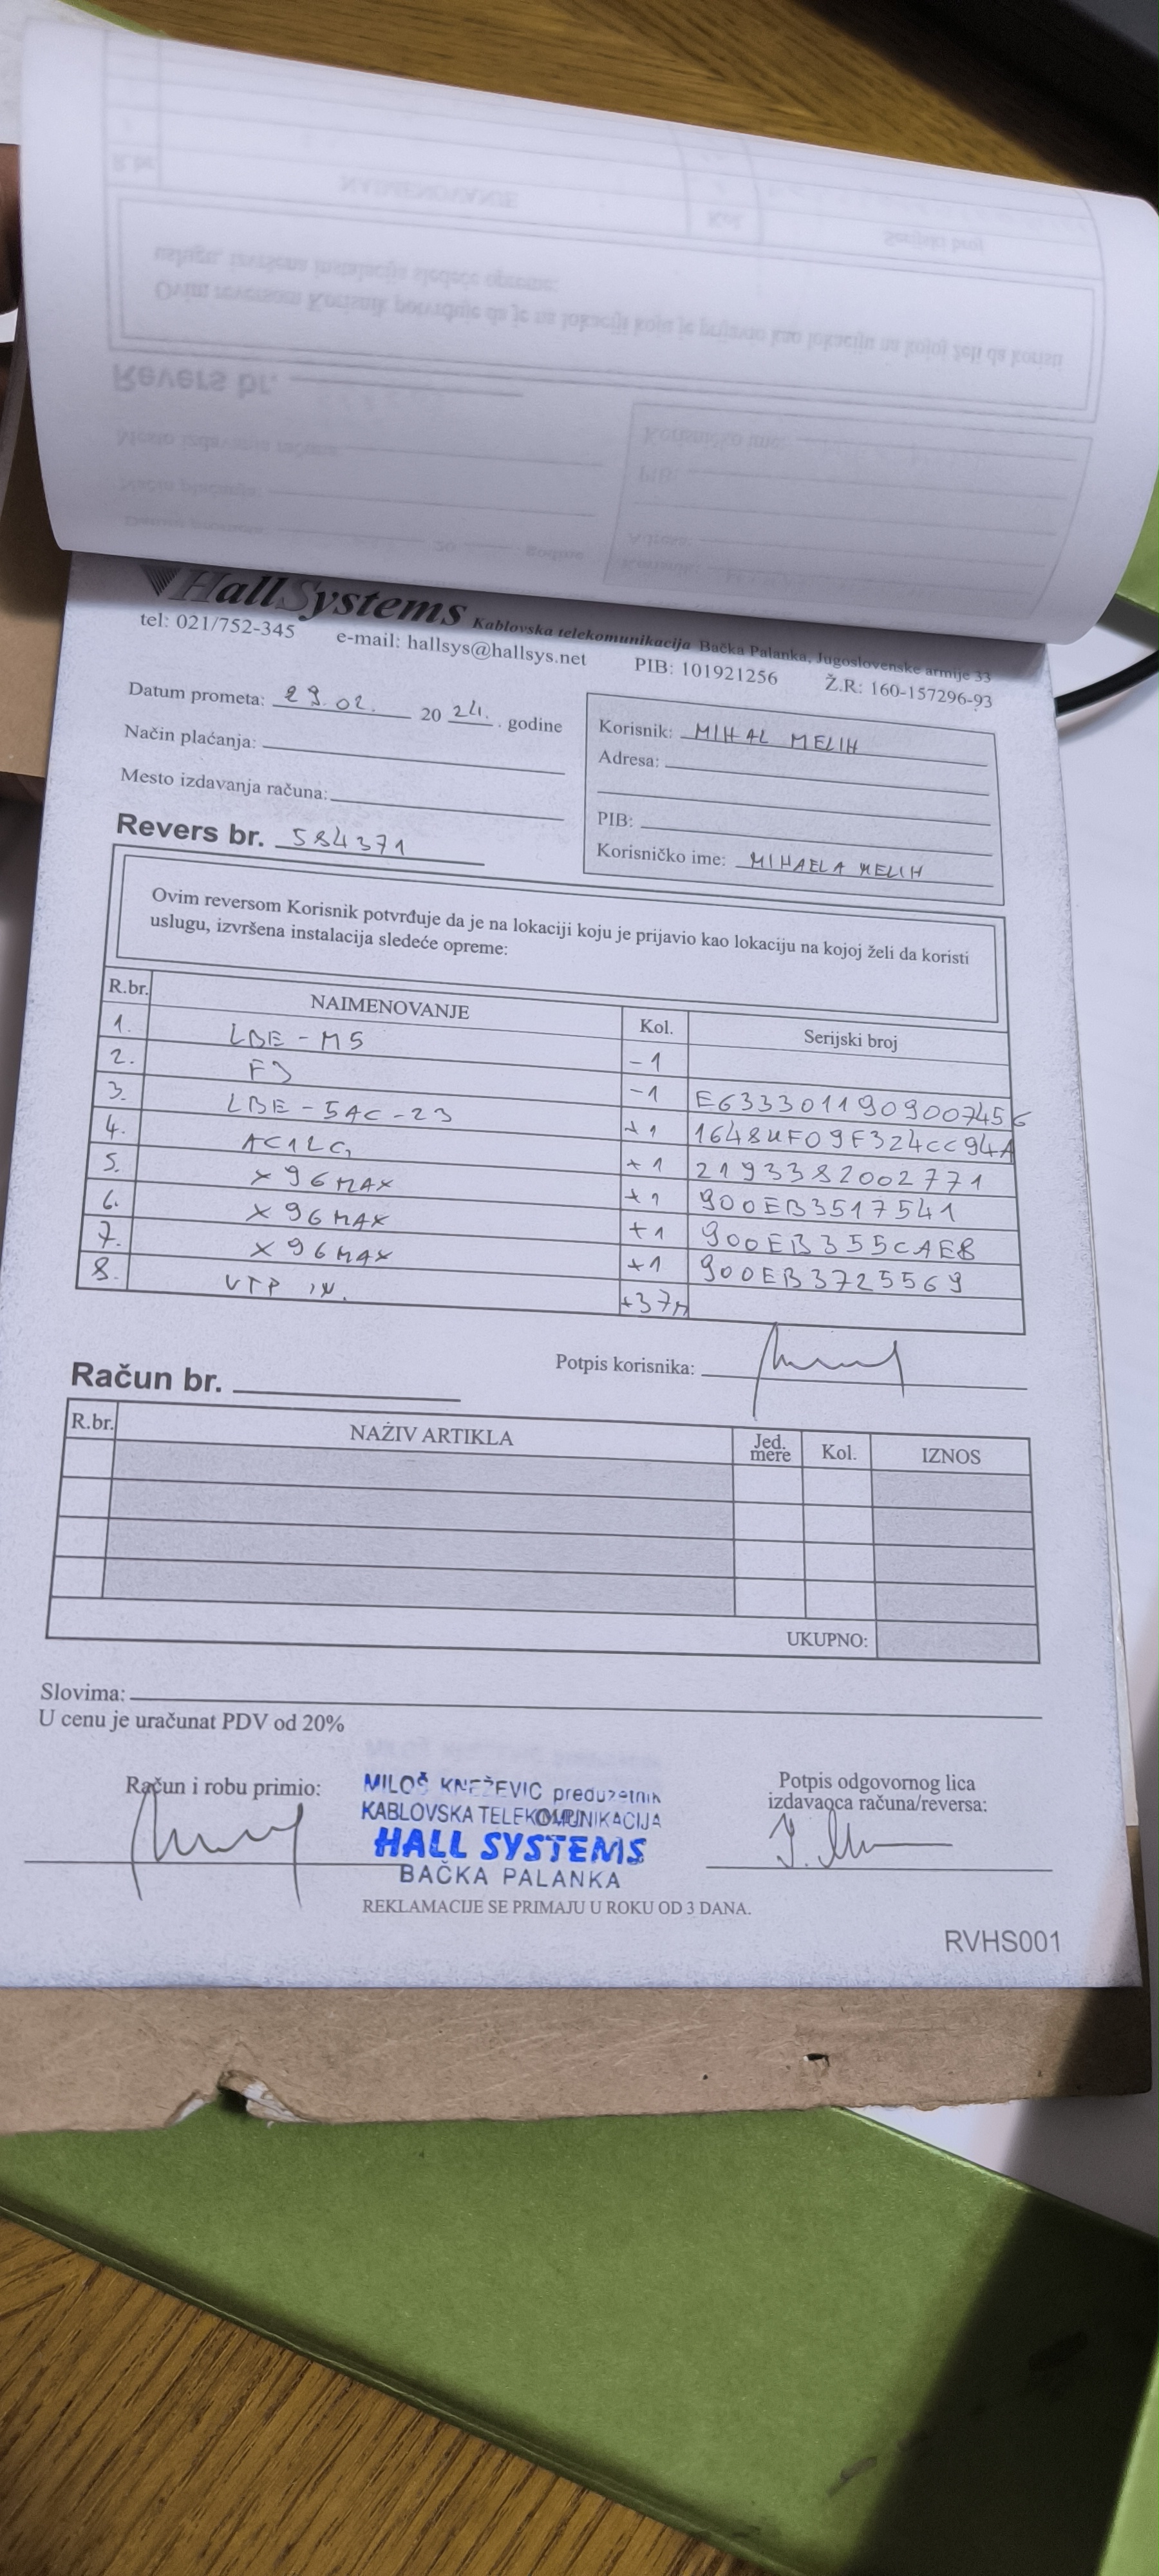 HallSystems Kablovska telekomunikacija Bačka Palanka, Jugoslovenske armije 33
tel: 021/752-345 e-mail: hallsys@hallsys.net PIB: 101921256 Ž.R: 160-157296-93
Datum prometa: 29.02. 20 24. . godine
Način plaćanja:
Mesto izdavanja računa:
Korisnik: MIHAL MELIH
Adresa:
PIB:
Korisničko ime: MIHAELA MELIH
Revers br. 584371
Ovim reversom Korisnik potvrđuje da je na lokaciji koju je prijavio kao lokaciju na kojoj želi da koristi
uslugu, izvršena instalacija sledeće opreme:
R.br. NAIMENOVANJE Kol. Serijski broj
1. LBE-M5 -1
2. F3 -1 E6333011909007456
3. LBE-5AC-23 +1 1648UF09F324CC94A
4. AC12G +1 2193382002771
5. X96MAX +1 900EB3517541
6. X96MAX +1 900EB355CAEB
7. X96MAX +1 900EB3725569
8. UTP +37m
Potpis korisnika:
Račun br.
R.br. NAŻIV ARTIKLA Jed. mere Kol. IZNOS
UKUPNO:
Slovima:
U cenu je uračunat PDV od 20%
Račun i robu primio:
MILOŠ KNEŽEVIC preduzetnik
KABLOVSKA TELEKOMUNIKACIJA
HALL SYSTEMS
BAČKA PALANKA
Potpis odgovornog lica
izdavaoca računa/reversa:
REKLAMACIJE SE PRIMAJU U ROKU OD 3 DANA.
RVHS001